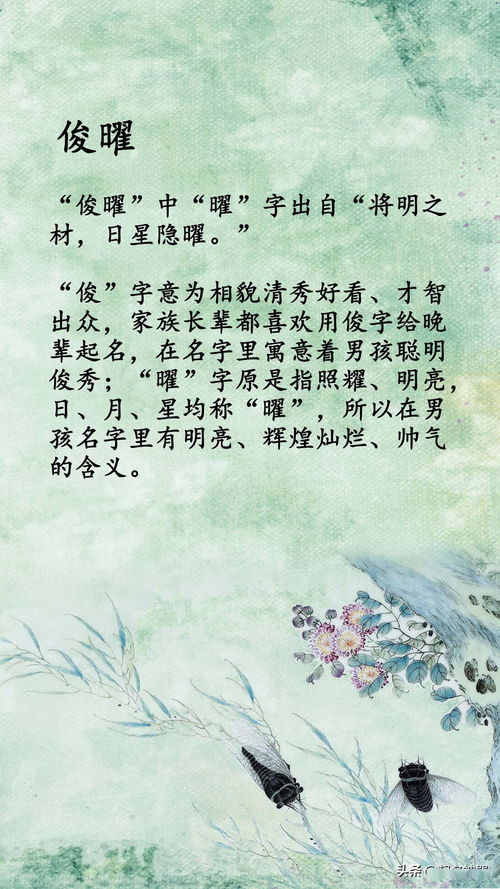 俊曜
“俊曜”中“曜”字出自“将明之
材，日星隐曜。”
“俊”字意为相貌清秀好看、才智
出众，家族长辈都喜欢用俊字给晚
辈起名，在名字里寓意着男孩聪明
俊秀；“曜”字原是指照耀、明亮，
日、月、星均称“曜”，所以在男
孩名字里有明亮、辉煌灿烂、帅气
的含义。
头条